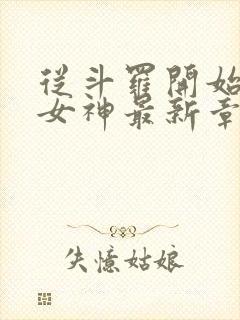 從斗羅開始
女神最新章
失憶姑娘